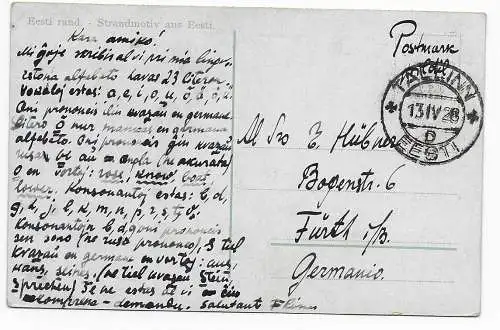 Eesti rand. - Strandmotiv aus Eesti.
Kara amiko!
Mi ĝoje skribis al vi pri nia lingvo.
Estona alfabeto havas 23 literojn.
Vokaloj estas: a, e, i, o, u, õ, ä, ö, ü.
Oni prononcis ilin kvazaŭ en germana.
Litero õ nur mancas en germana
alfabeto. Oni prononcis ĝin kvazaŭ
rusan ы aŭ angla (ne akurata)
o en vortoj: rose, know, boat,
lower. Konsonantoj estas: b, d,
g, h, j, k, l, m, n, p, r, s, t, v.
Konsonantojn b, d, g oni prononcis
sen sono (ne ruse prononco), s tiel
kvazaŭ en germane en vortoj: aus,
Haus, (ne tiel kvazaŭ Stein,
sprechen) Se ne estas de vi ĉio
komprene - demandu. Salutant
Postmark
TALLINN
13 IV 28
EESTI
Al Sro E. Hübner
Bogenstr. 6
Fürth i/B.
Germanio.